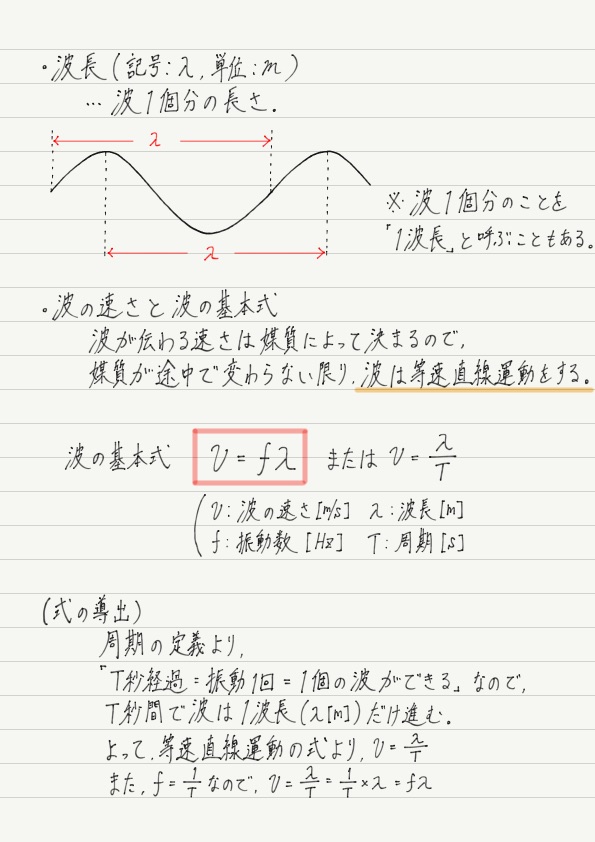 ・波長(記号:λ, 単位:m)
… 波1個分の長さ.
λ
λ
※ 波1個分のことを
「1波長」と呼ぶこともある。
・波の速さと波の基本式
波が伝わる速さは媒質によって決まるので,
媒質が途中で変わらない限り, 波は等速直線運動をする。
波の基本式 v = fλ または v = λ/T
( v:波の速さ[m/s] λ:波長[m]
f:振動数[Hz] T:周期[s]
(式の導出)
周期の定義より,
「T秒経過=振動1回=1個の波ができる」なので,
T秒間で波は1波長(λ[m])だけ進む.
よって, 等速直線運動の式より, v = λ/T
また, f = 1/T なので, v = λ/T = 1/T × λ = fλ